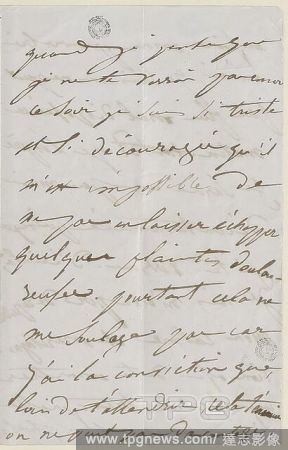 quand je pense que
je ne te verrai pas encore
ce soir je suis si triste
et si découragée qu'il
m'est impossible de
ne pas en laisser échapper
quelques plaintes doulou-
reuses. pourtant cela ne
me soulage pas car
j'ai la conviction que,
loin de t'attendrir cela t'
on ne peut pas
TPG
www.tpgnews.com/ 達志影像